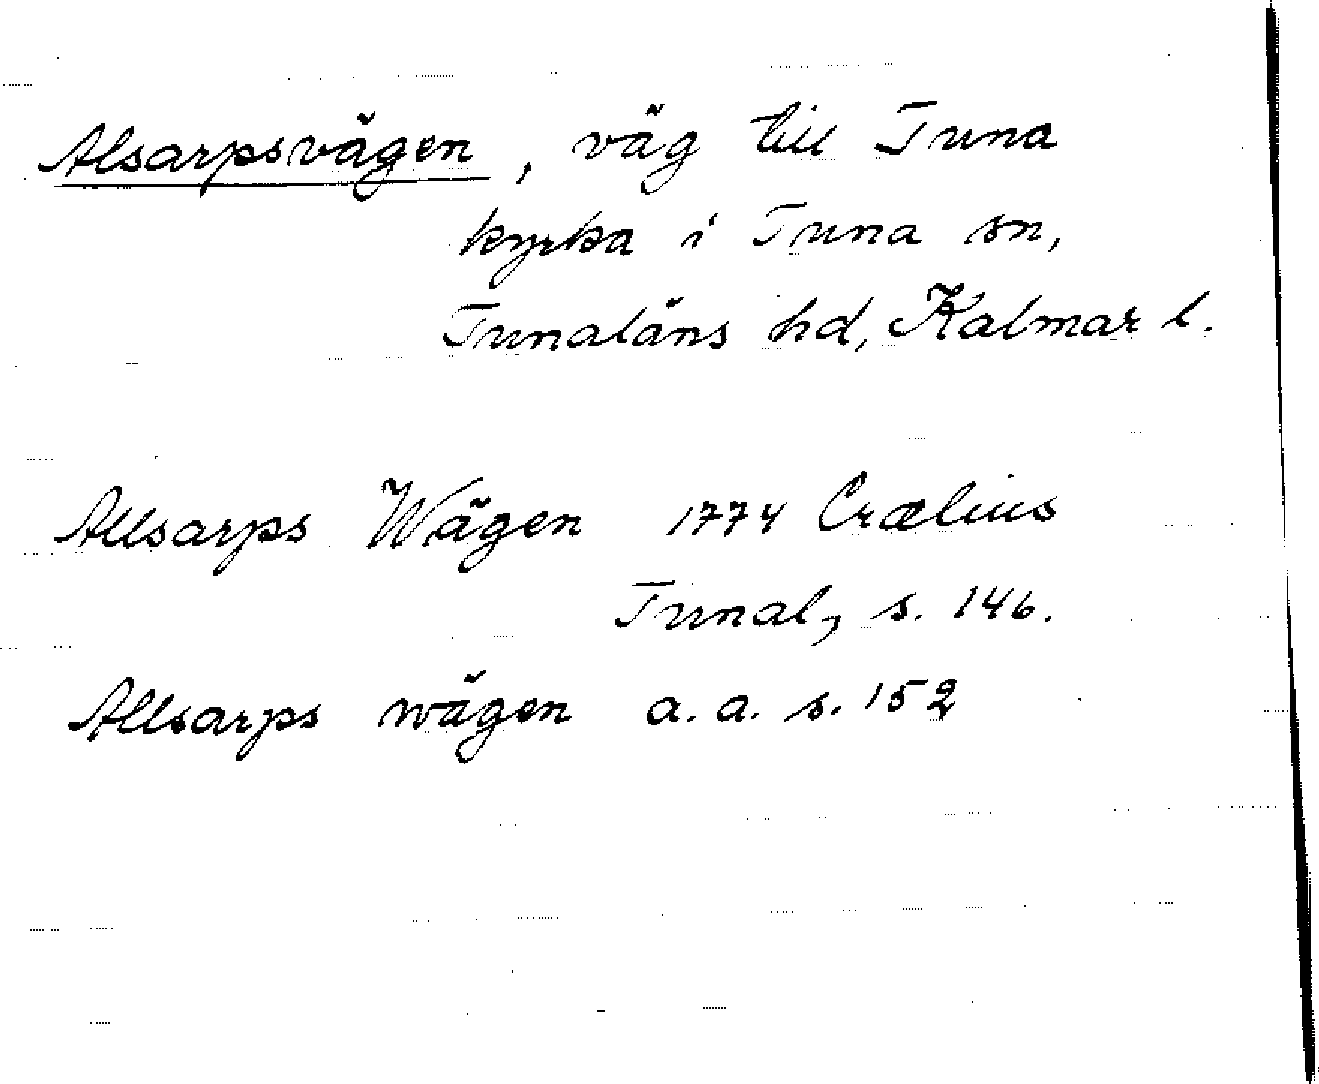 Alsarpsvägen, väg till Tuna
kyrka i Tuna sn,
Tunaläns hd, Kalmar l.
Allsarps Wägen 1774 Crælius
Tunal, s. 146.
Allsarps wägen a. a. s. 152